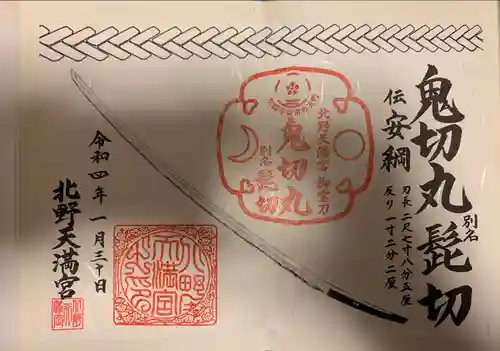 鬼切丸 別名 髭切
伝 安綱
刃長 二尺七寸八分五厘
反り 一寸二分二厘
北野天満宮 御宝刀
鬼切丸
別名 髭切
令和四年 一月三十日
北野天満宮